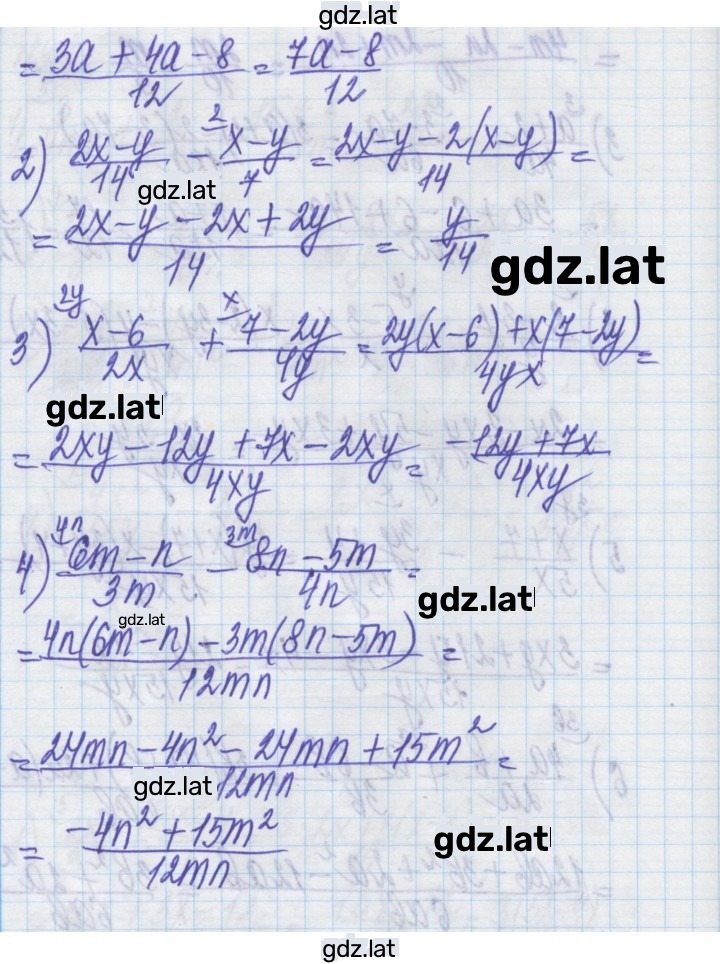 gdz.lat
= (3a + 4a - 8)/12 = (7a - 8)/12
2) (2x - y)/14 - ²(x - y)/7 = (2x - y - 2(x - y))/14 =
gdz.lat
= (2x - y - 2x + 2y)/14 = y/14
gdz.lat
3) ²ʸ(x - 6)/2x + ˣ(7 - 2y)/4y = (2y(x - 6) + x(7 - 2y))/4yx =
gdz.lat
= (2xy - 12y + 7x - 2xy)/4xy = (-12y + 7x)/4xy
4) ⁴ⁿ(6m - n)/3m - ³ᵐ(8n - 5m)/4n =
gdz.lat
gdz.lat
= (4n(6m - n) - 3m(8n - 5m))/12mn =
= (24mn - 4n² - 24mn + 15m²)/12mn =
gdz.lat
= (-4n² + 15m²)/12mn
gdz.lat
gdz.lat